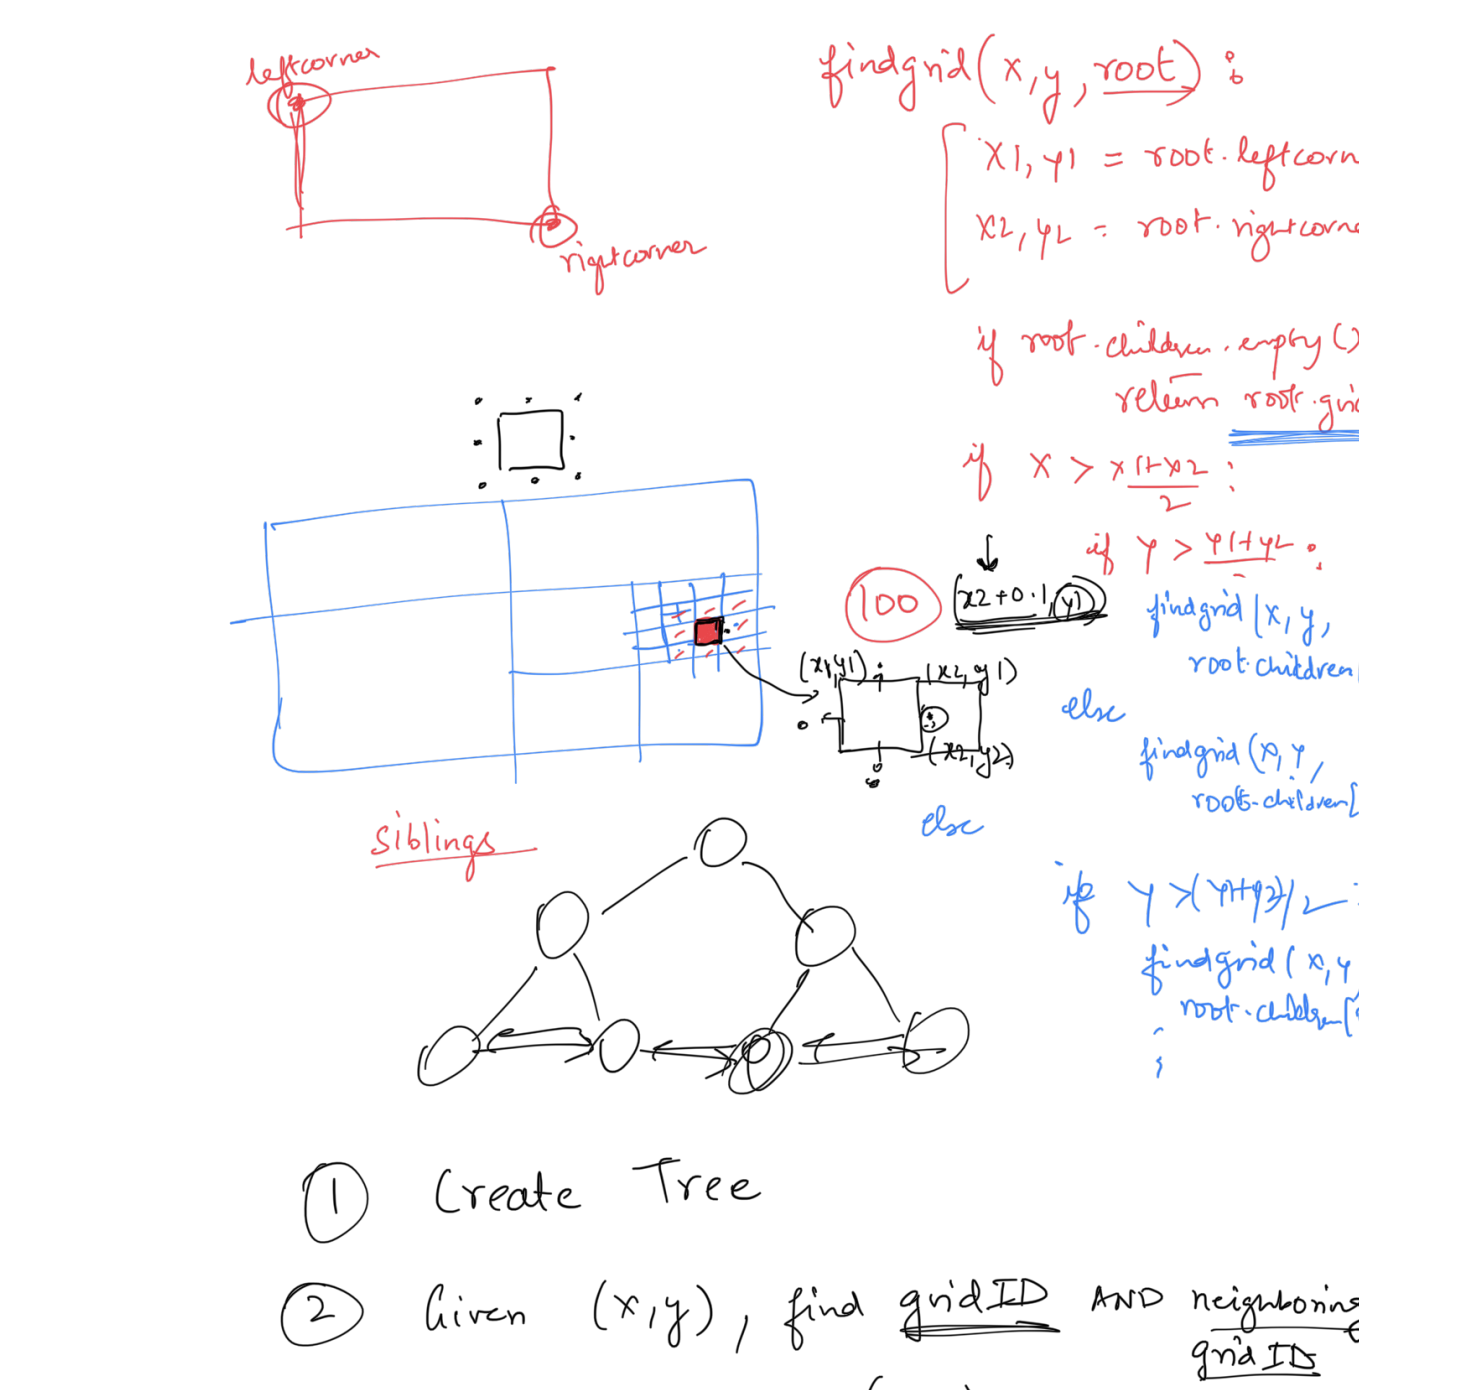 leftcorner
rightcorner
findgrid(x,y,root):
x1,y1 = root.leftcorn
x2,y2 = root.rightcorne
if root.children.empty()
return root.grid
if x > x1+x2 :
2
if y > y1+y2 :
100
(x2+0.1,y1)
findgrid(x,y,
root.children
(x1,y1)
(x2,y1)
(x2,y2)
else
findgrid(x,y,
root.children[
else
siblings
if y >(y1+y2)/2 :
findgrid(x,y
root.children[
1 Create Tree
2 Given (x,y), find gridID AND neighboring
gridID